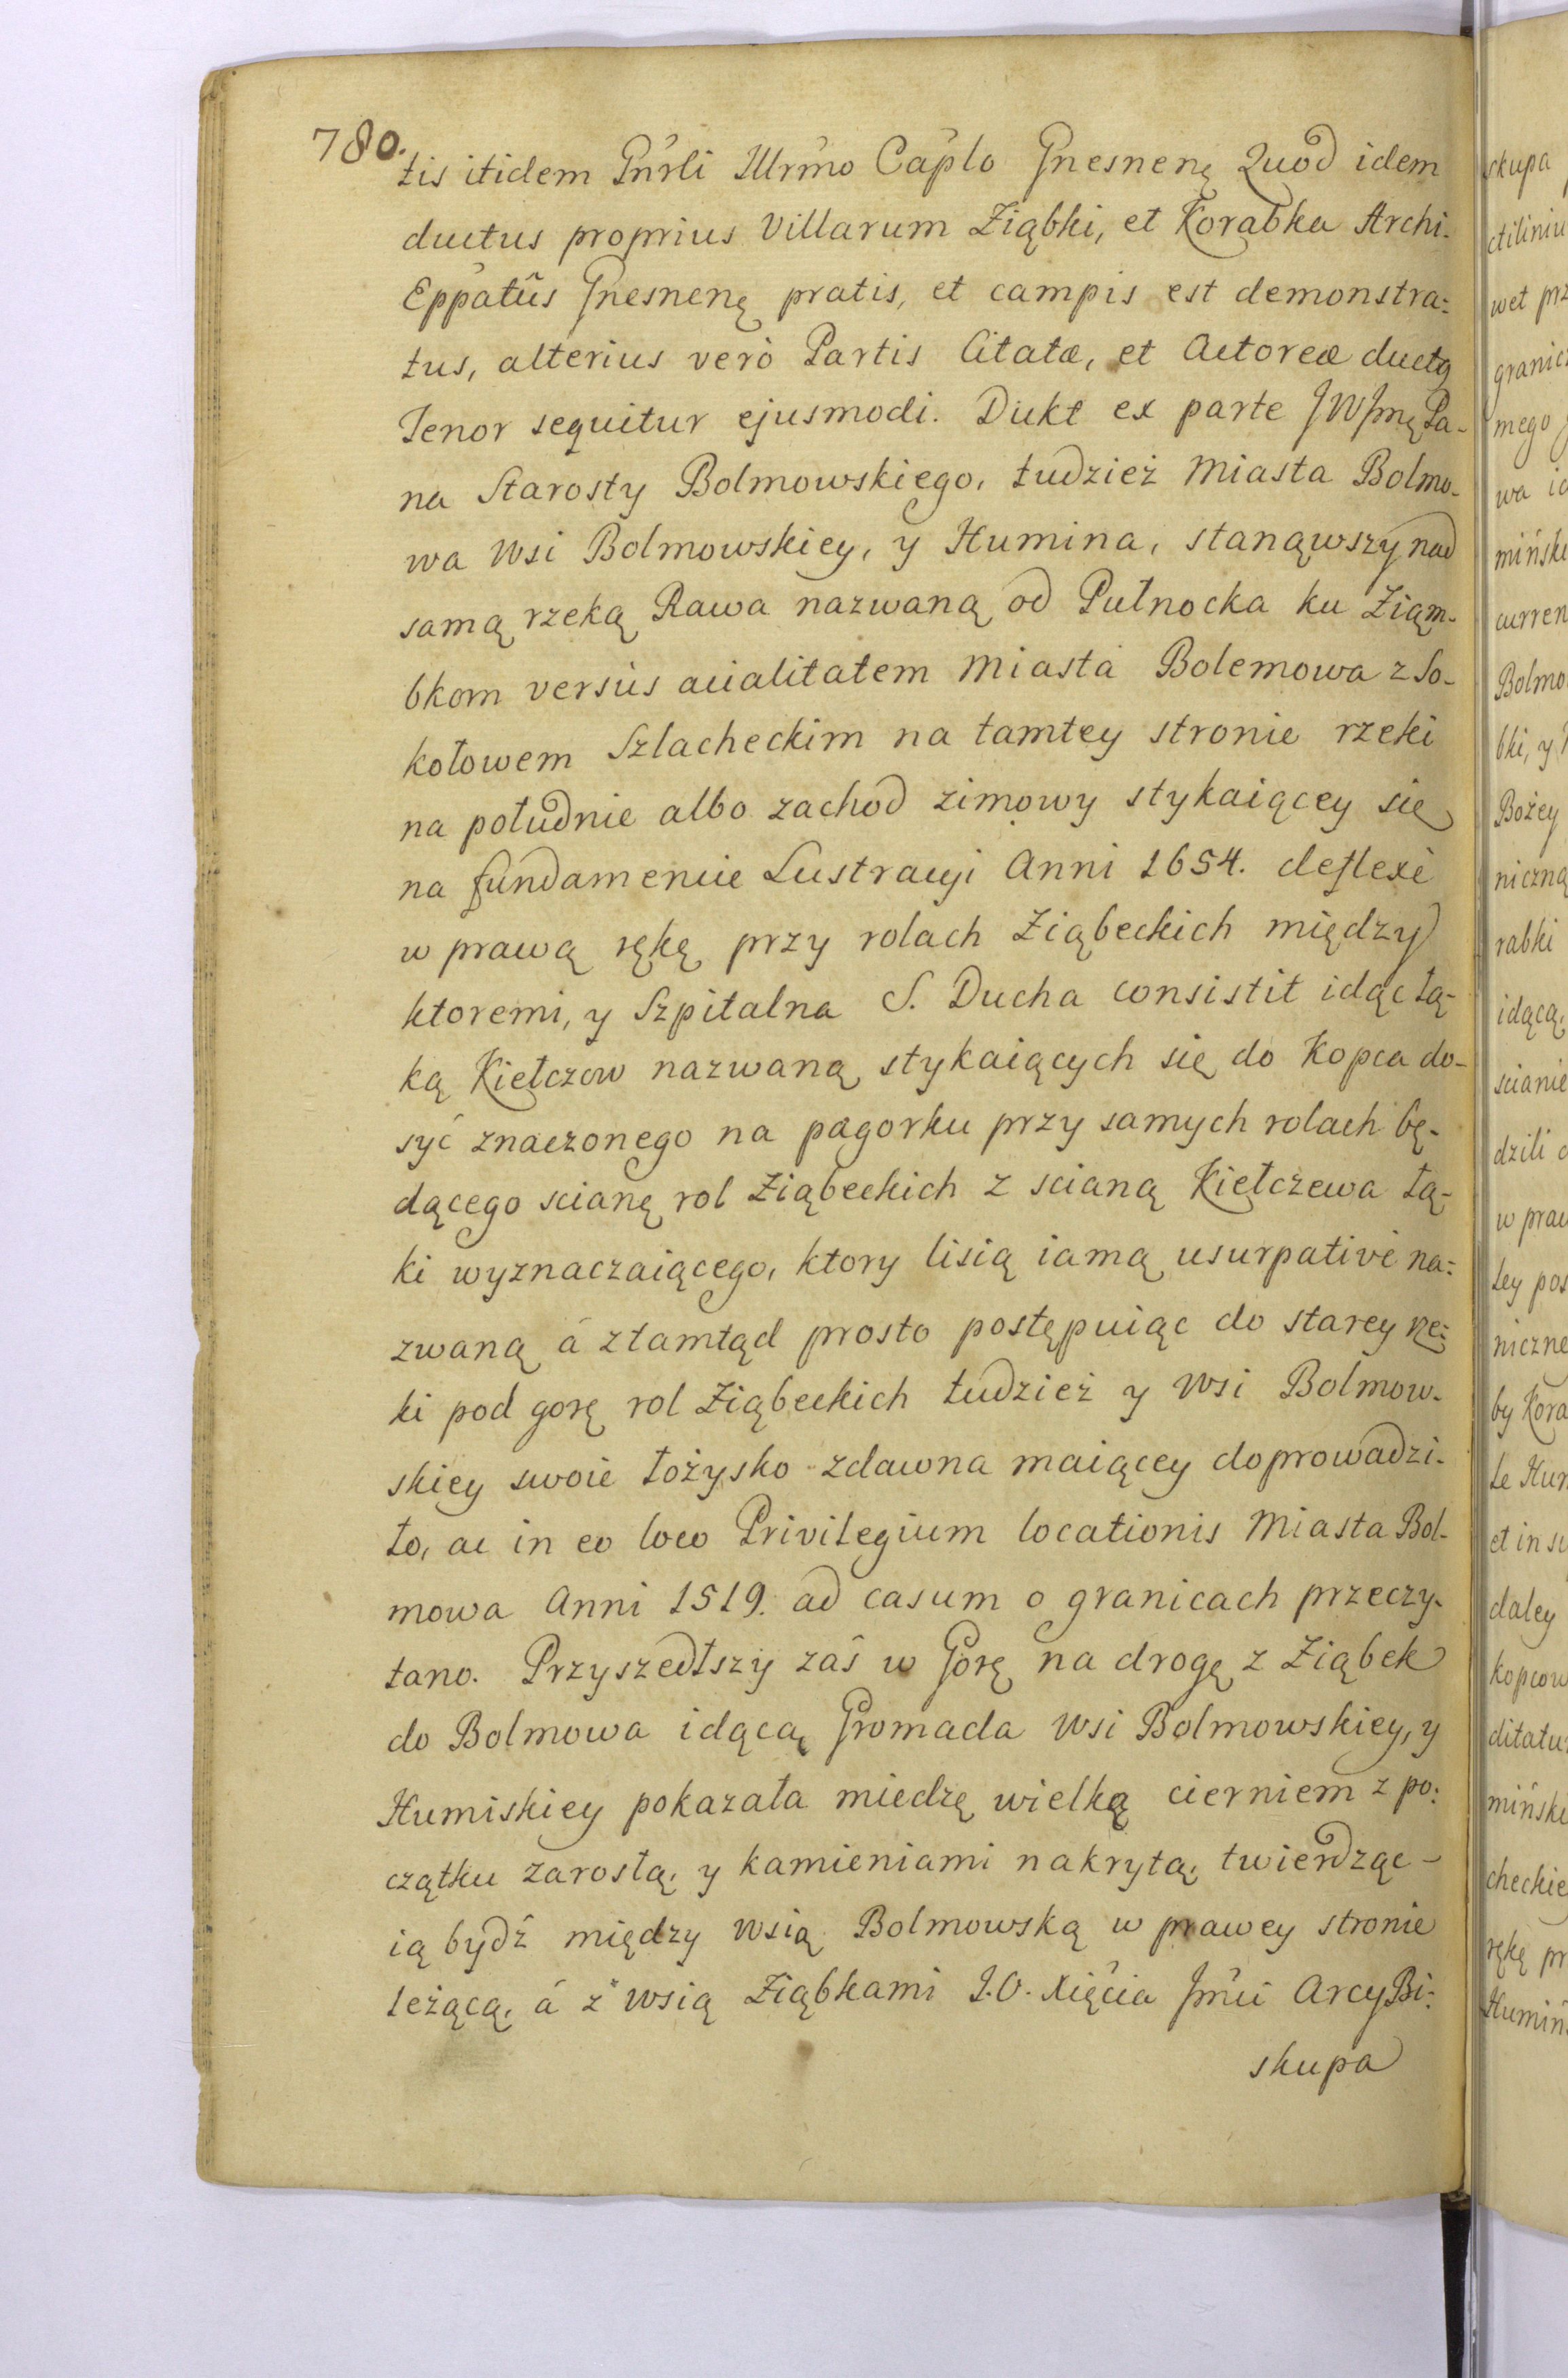 780.
tis itidem Pnrli Illrmo Caplo Gnesnenę Quod idem
ductus proprius Villarum Ziąbki, et Korabka Archi-
Eppatûs Gnesnenę pratis, et campis est demonstra:
tus, alterius verò Partis Citatæ, et Actoreæ ductg
Tenor sequitur ejusmodi. Dukt ex parte JWJmę Pa-
na Starosty Bolmowskiego, tudzież Miasta Bolmo-
wa Wsi Bolmowskiey, y Humina, stanąwszy nad
samą rzeką Rawa nazwaną od Pułnocka ku Ziąm-
bkom versùs acialitatem Miasta Bolemowa z So-
kołowem Szlacheckim na tamtey stronie rzeki
na południe albo zachod zimowy stykaiącey się
na fundamencie Lustracyi Anni 1654. deflexi
w prawą rękę przy rolach Ziąbeckich między
ktoremi, y Szpitalna S. Ducha consistit idąc łą-
ką Kiełczow nazwaną stykaiących się do Kopca do-
syć znaczonego na pagorku przy samych rolach bę-
dącego scianę rol Ziąbeckich z scianą Kiełczewa łą-
ki wyznaczaiącego, ktory lisią iamą usurpativè na:
zwaną á ztamtąd prosto postępuiąc do starey rze:
ki pod gorę rol Ziąbeckich tudzież y Wsi Bolmow-
skiey swoie łożysko zdawna maiącey doprowadzi-
ło, ac in eo loco Privilegium locationis Miasta Bol-
mowa Anni 1519. ad casum o granicach przeczy-
tano. Przyszedłszy zaś w Gorę na drogę z Ziąbek
do Bolmowa idącą Gromada Wsi Bolmowskiey, y
Humiskiey pokazała miedzę wielką cierniem z po:
czątku zarosłą, y kamieniami nakrytą, twierdząc –
ią bydź między Wsią Bolmowską w prawey stronie
leżącą, á z wsią Ziąbkami J.O. Xięcia Jmci ArcyBi:
skupa
skupa
wet prz
granicz
mego
wa
mińsk
curren
Bolmo
bki, y
Bożey
niczną
rabki
idącą,
scianie
dzili
w praw
tey pos
niczne
by Kora
le Hum
et in
daley
kopcow
ditatu
mińsk
checkie
rękę pr
Humiń